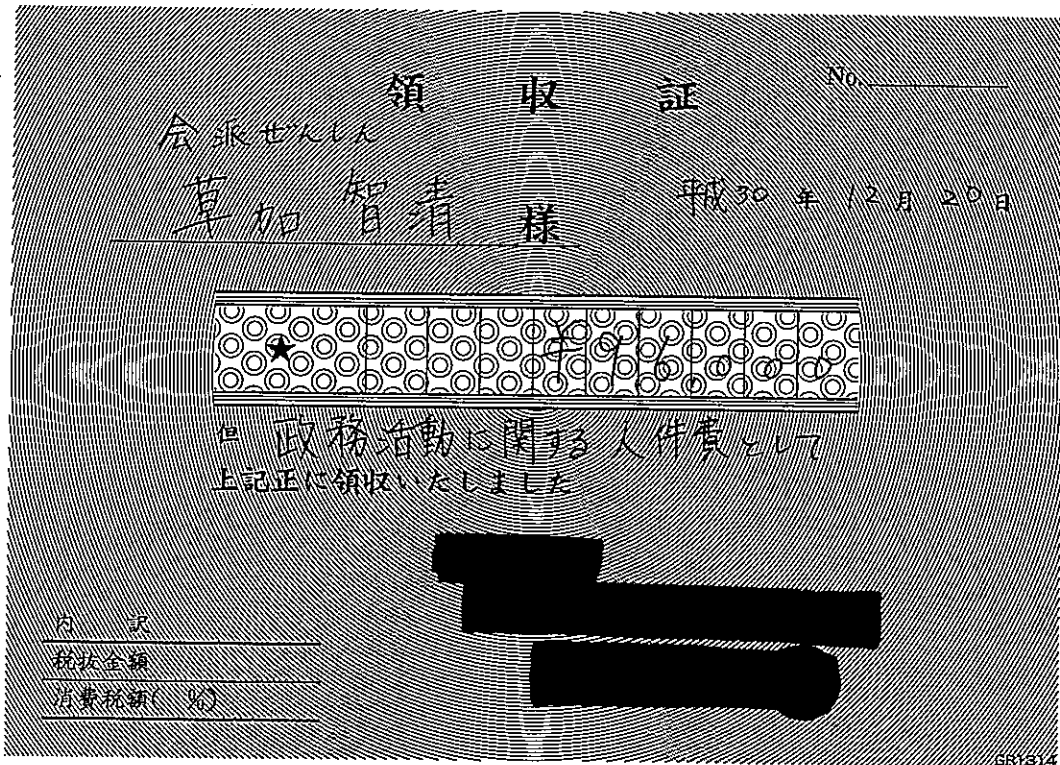 領収証
No.
会派ぜんしん
草加智清 様
平成30年12月20日
★ ¥96,000
但 政務活動に関する人件費として
上記正に領収いたしました
内訳
税抜金額
消費税額( %)
GR1314